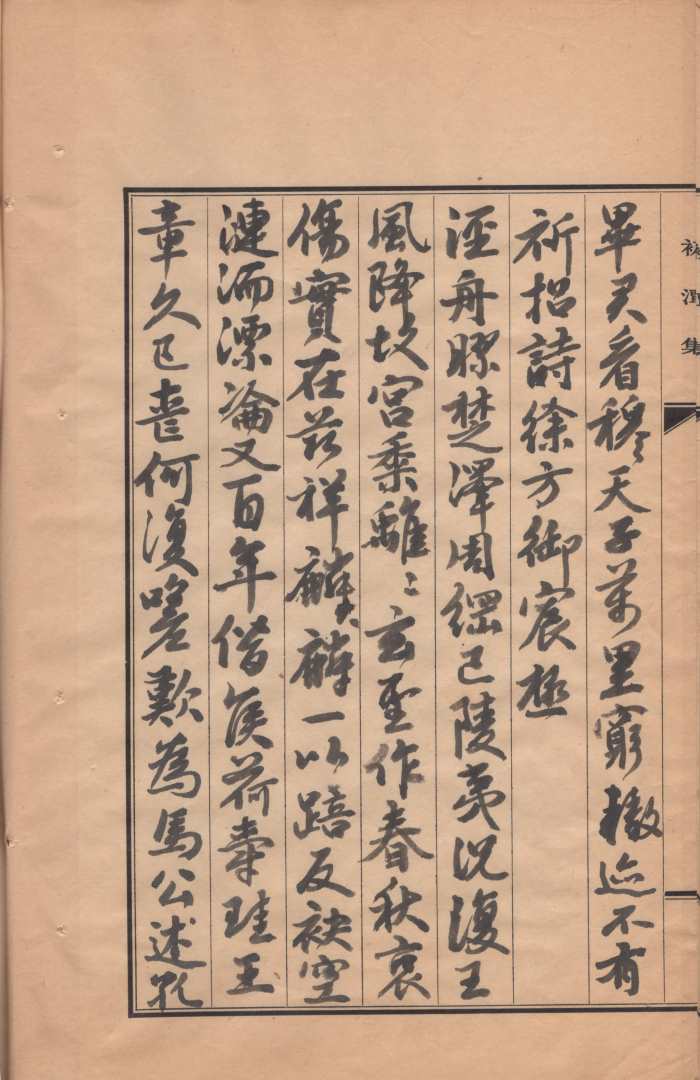 潤集
畢君看穆天子萬里窮轍迹不有
祈招詩徐方御宸極
涇舟膠楚澤周綱已陵夷況復王
風降故宮黍離〻玄聖作春秋哀
傷實在茲祥麟麟一以踣反袂空
漣洏漂淪又百年僭侯荷爵珪王
章久已喪何復嗟歎為馬公述孔